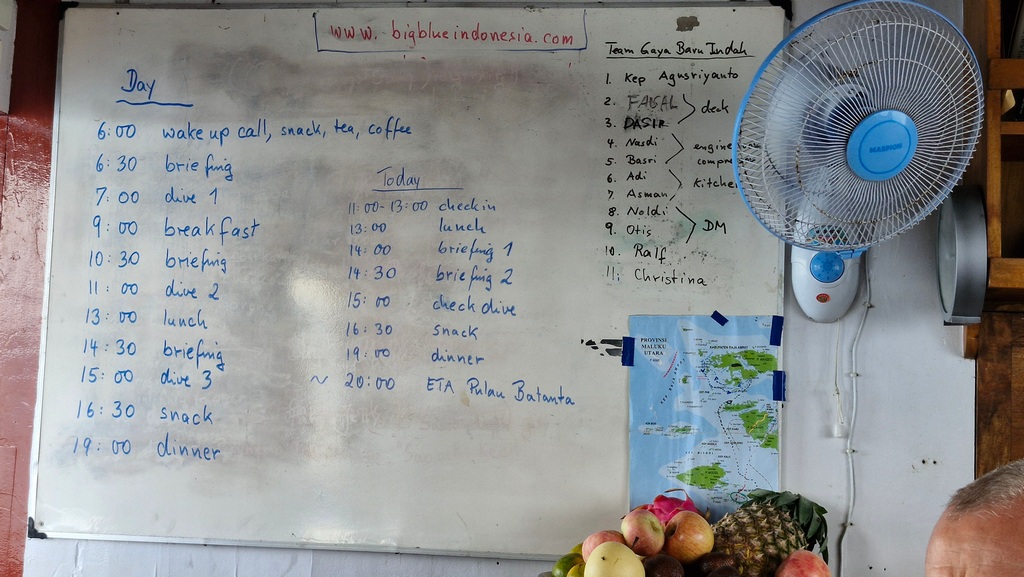 www.bigblueindonesia.com
Day
6:00 wake up call, snack, tea, coffee
6:30 briefing
7:00 dive 1
9:00 breakfast
10:30 briefing
11:00 dive 2
13:00 lunch
14:30 briefing
15:00 dive 3
16:30 snack
19:00 dinner
Today
11:00-13:00 check in
13:00 lunch
14:00 briefing 1
14:30 briefing 2
15:00 check dive
16:30 snack
19:00 dinner
~ 20:00 ETA Pulau Batanta
Team Gaya Baru Indah
1. Kep Agusriyanto
2. FAISAL
3. DASIR
deck
4. Nasdi
5. Basri
engine
compre
6. Adi
7. Asman
kitchen
8. Noldi
9. Otis
DM
10. Ralf
11. Christina
MASPION
PROVINSI
MALUKU
UTARA